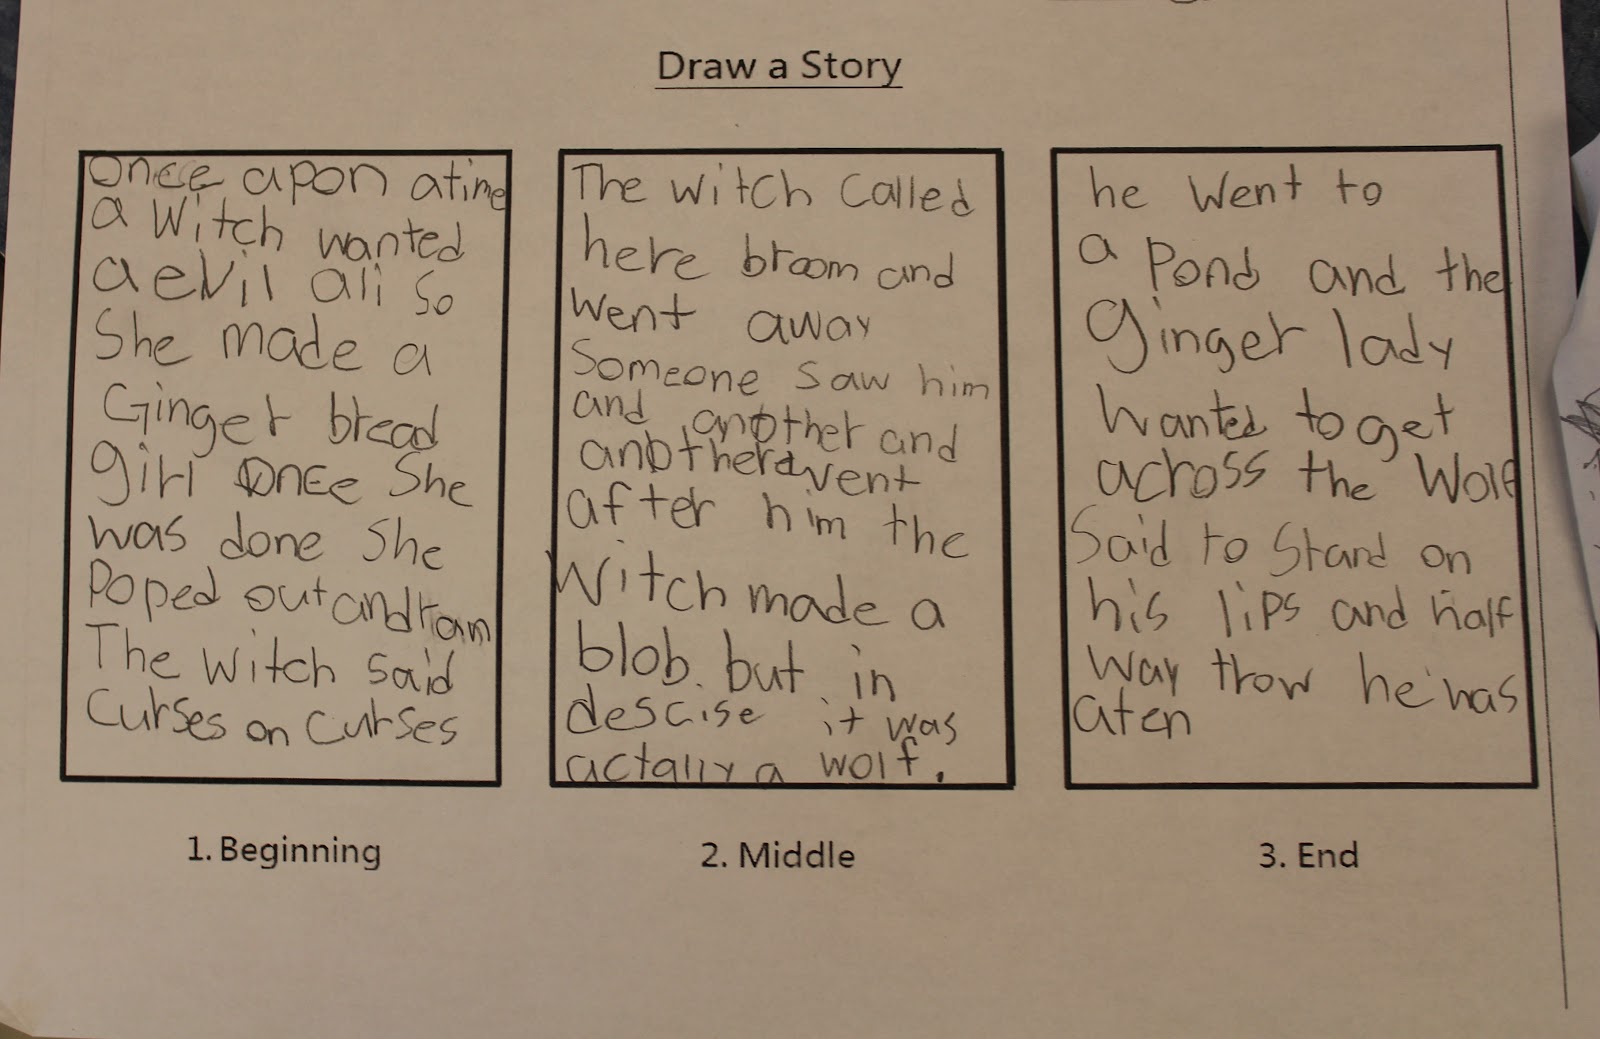 Draw a Story
Once apon atime
a witch wanted
a evil ali so
She made a
Ginger bread
girl Once She
was done She
Poped out and ran
The witch said
Curses on Curses
The witch called
here broom and
went away
Someone saw him
and another and
another went
after him the
Witch made a
blob. but in
descise it was
actally a wolf.
he went to
a Pond and the
ginger lady
wanted to get
across the Wolf
Said to Stand on
his lips and half
way trow he was
aten
1. Beginning
2. Middle
3. End